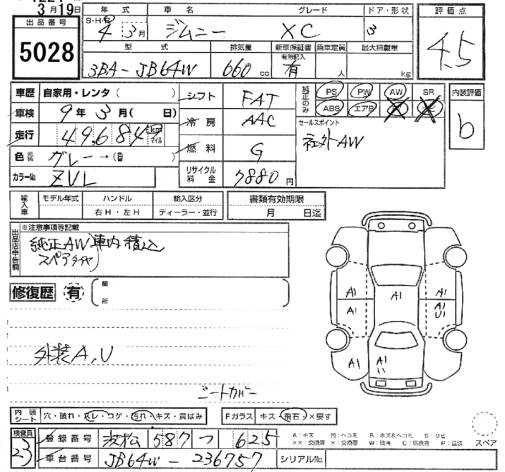 3月19日
出品番号
5028
年式 車名 グレード ドア・形状
S・H・R 4年 3月 ジムニー XC 3
型式 排気量 新車保証書 乗車定員 最大積載量
3BA-JB64W 660cc 有 人 kg
評価点
4.5
車歴 自家用・レンタ
車検 9年 3月( 日)
走行 49,684 km マイル
色 グレー→(
カラーNo ZVL
シフト FAT
冷房 AAC
燃料 G
リサイクル料金 7880円
純正のみ
PS PW AW SR
ABS エアB
セールスポイント
社外AW
内装評価
b
輸入車 モデル年式 ハンドル 輸入区分
右H・左H ディーラー・並行
書類有効期限
月 日迄
出品店申告欄
※注意事項等記載
純正AW車内積込
スペアタイヤ
修復歴 有
箇所
外装A,U
シートカバー
A1 A1 A1
A1 U1
A1 A1
内装シート 穴・破れ・スレ・コゲ・汚れ・キズ・黄ばみ
Fガラス キズ・飛石・×要す
スペア
検査員
23
登録番号 浜松 587 つ 625
車台番号 JB64W-236757
シリアルNo.
A:キズ